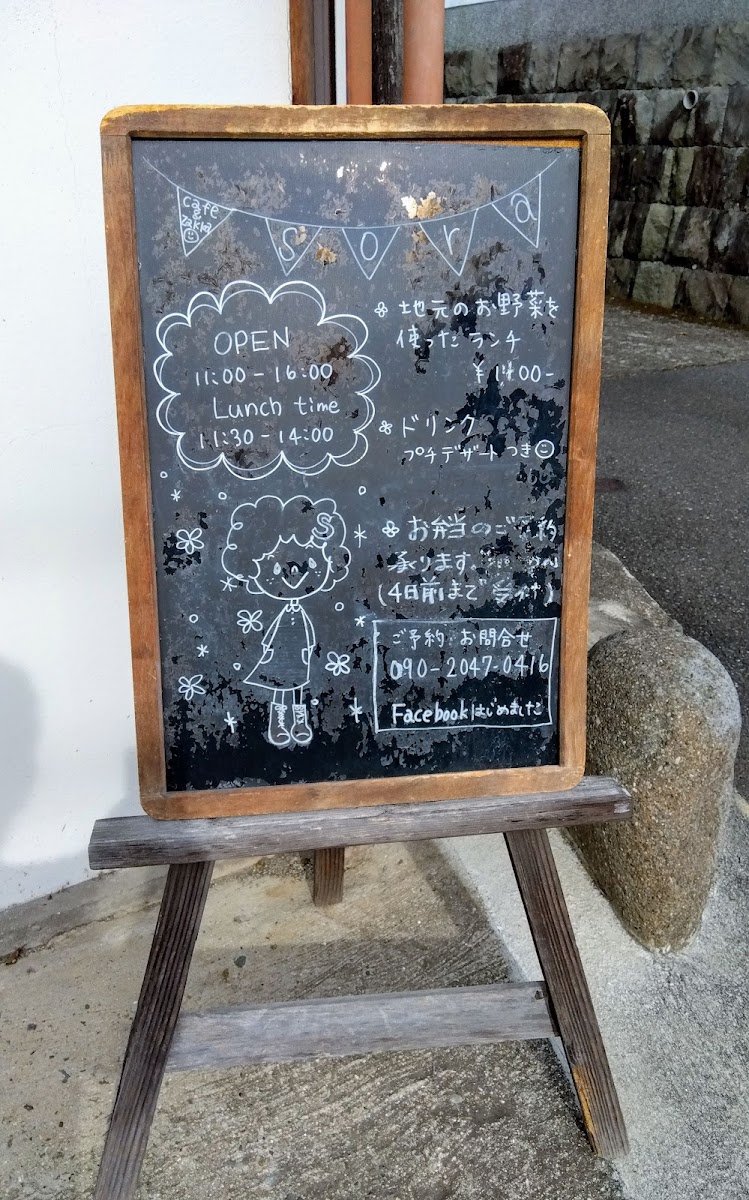 cafe
&
zakka
sora
OPEN
11:00-16:00
Lunch time
11:30-14:00
地元のお野菜を
使ったランチ
ドリンク
プチデザートつき
お弁当のご予約
承ります。
(4日前まで受付)
ご予約・お問合せ
090-2047-0416
Facebookはじめました
S